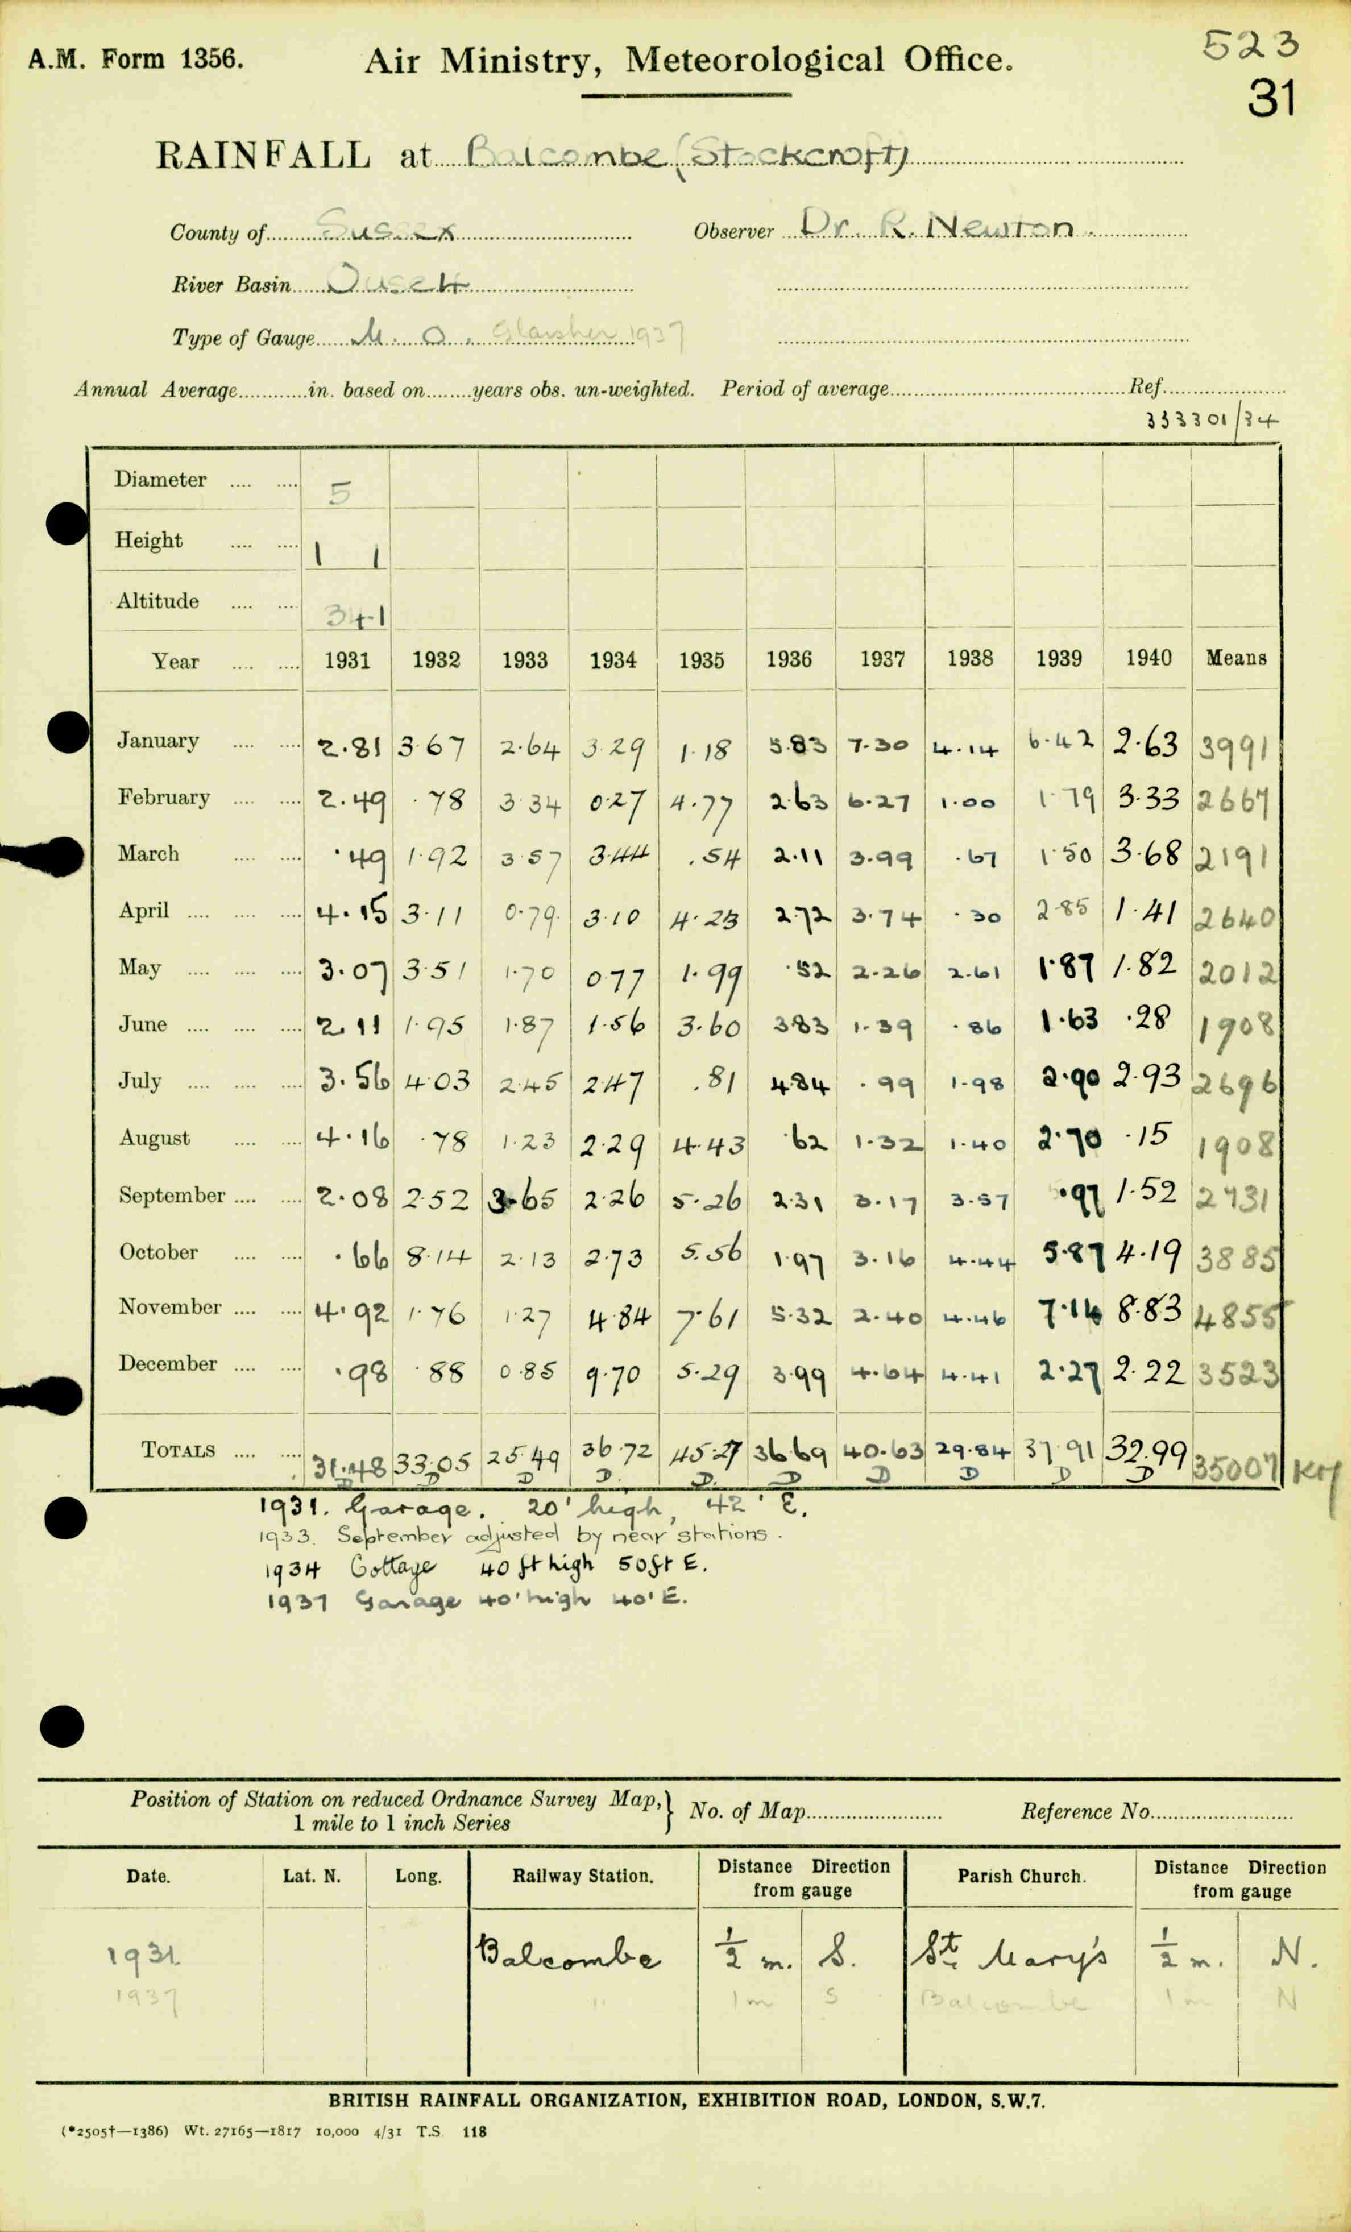 A.M. Form 1356. Air Ministry, Meteorological Office. 523
31
RAINFALL at Balcombe (Stockcroft)
County of Sussex Observer Dr. R. Newton.
River Basin Ouse 4
Type of Gauge M. O. Glaisher 1937
Annual Average in. based on years obs. un-weighted. Period of average Ref.
333301/34
Diameter 5
Height 1 1
Altitude 341
Year 1931 1932 1933 1934 1935 1936 1937 1938 1939 1940 Means
January 2.81 3.67 2.64 3.29 1.18 5.83 7.30 4.14 6.42 2.63 3991
February 2.49 .78 3.34 0.27 4.77 2.63 6.27 1.00 1.79 3.33 2667
March .49 1.92 3.57 3.44 .54 2.11 3.99 .67 1.50 3.68 2191
April 4.15 3.11 0.79 3.10 4.23 2.72 3.74 .30 2.85 1.41 2640
May 3.07 3.51 1.70 0.77 1.99 .52 2.26 2.61 1.87 1.82 2012
June 2.11 1.95 1.87 1.56 3.60 3.83 1.39 .86 1.63 .28 1908
July 3.56 4.03 2.45 2.47 .81 4.84 .99 1.98 2.90 2.93 2696
August 4.16 .78 1.23 2.29 4.43 .62 1.32 1.40 2.70 .15 1908
September 2.08 2.52 3.65 2.26 5.26 2.31 3.17 3.57 .97 1.52 2731
October .66 8.14 2.13 2.73 5.56 1.97 3.16 4.44 5.87 4.19 3885
November 4.92 1.76 1.27 4.84 7.61 5.32 2.40 4.46 7.14 8.83 4855
December .98 .88 0.85 9.70 5.29 3.99 4.64 4.41 2.27 2.22 3523
TOTALS 31.48 33.05 25.49 36.72 45.27 36.69 40.63 29.84 37.91 32.99 35007
D D D D. D. D D D D D
1931. Garage. 20' high, 42' E.
1933. September adjusted by near stations.
1934 Cottage 40 ft high 50ft E.
1937 Garage 40' high 40' E.
Position of Station on reduced Ordnance Survey Map, 1 mile to 1 inch Series } No. of Map Reference No.
Date. Lat. N. Long. Railway Station. Distance Direction from gauge Parish Church. Distance Direction from gauge
1931. Balcombe 1/2 m. S. St. Mary's 1/2 m. N.
1937 " 1m S Balcombe 1m N
BRITISH RAINFALL ORGANIZATION, EXHIBITION ROAD, LONDON, S.W.7.
(*2505†—1386) Wt. 27165—1817 10,000 4/31 T.S. 118